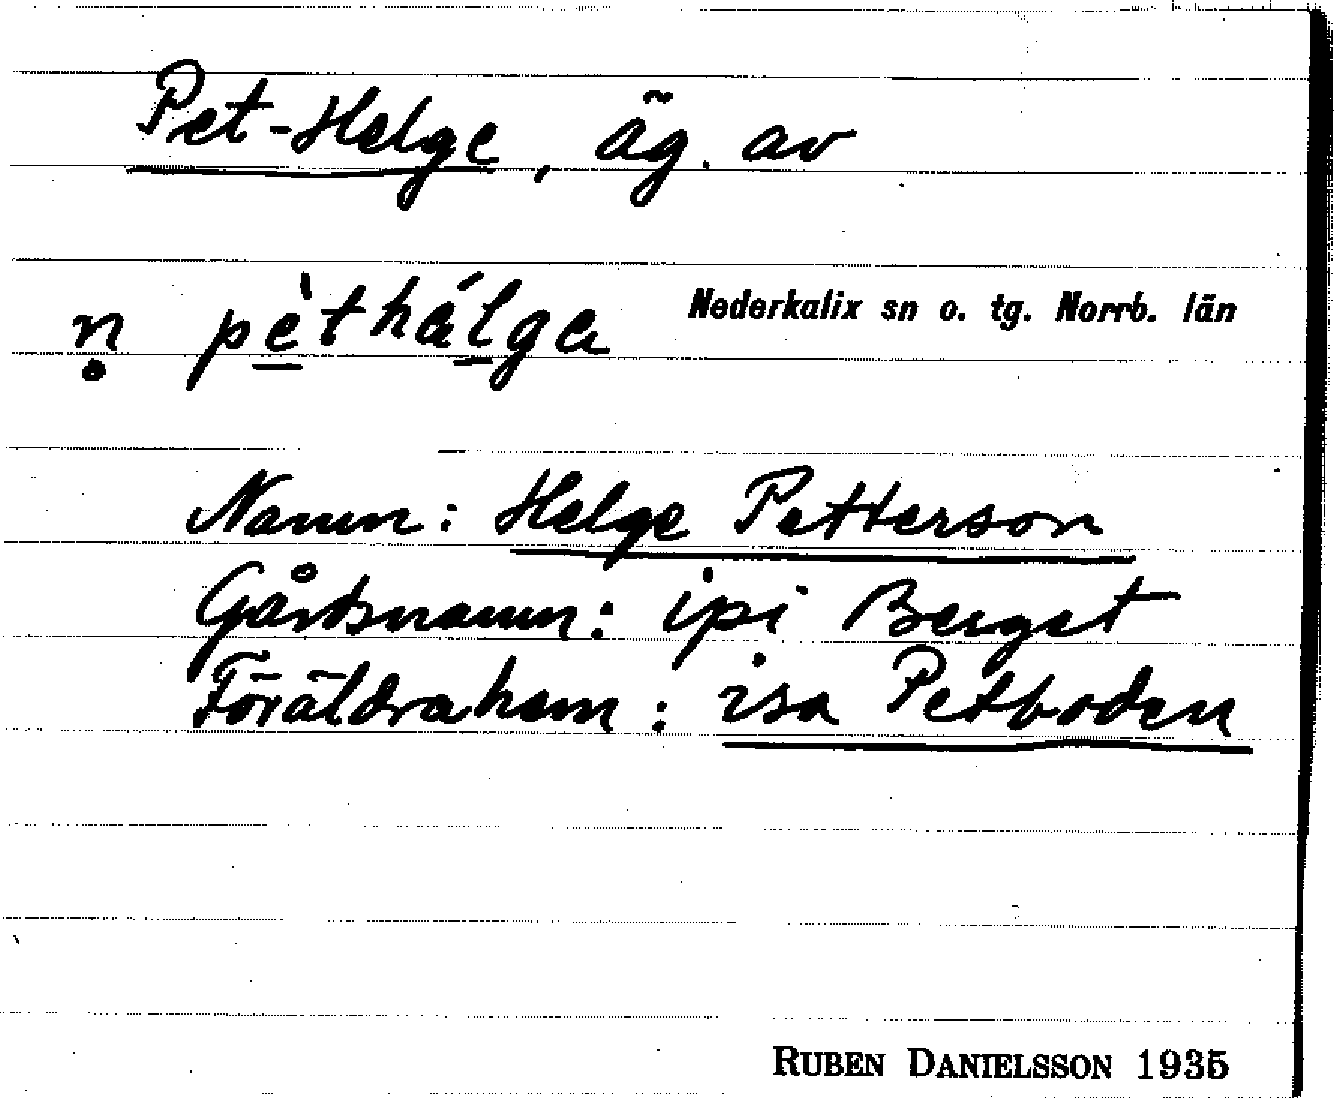 Pet-Helge, äg. av
Nederkalix sn o. tg. Norrb. län
ṇ pèthálga
Namn: Helge Petterson
Gårdsnamn: ipi Berget
Föräldrahem: isa Petboden
RUBEN DANIELSSON 1935